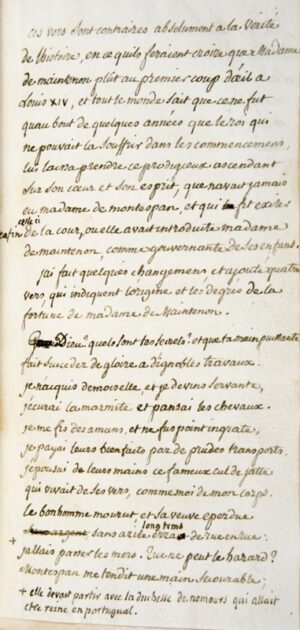 ces vers sont contraires absolument a la verité
de l'histoire, en ce quils feraient croire que Madame
de maintenon plût au premier coup d'œil a
Louis XIV, et tout le monde sait que ce ne fut
quau bout de quelques années que le roi qui
ne pouvait la souffrir dans les commencemens,
lui laissa prendre ce prodigieux ascendant
sur son cœur et son esprit, que navait jamais
eu madame de montespan, et qui fit exiler
enfin celle ci de la cour, ou elle avait introduite madame
de maintenon, comme gouvernante de ses enfans.
j'ai fait quelques changemens et ajouté quatre
vers, qui indiquent l'origine et les degrés de la
fortune de madame de Maintenon.
Dieu! quels sont tes secrets? et que ta main puissante
fait succeder de gloire a dignobles travaux.
je naquis demoiselle, et je devins servante,
j'écurai la marmite et pansai les chevaux.
je me fis des amans, et ne fus point ingrate,
je payai leurs bienfaits par de prudes transports,
je reçus de leurs mains ce fameux cul de jatte
qui vivait de ses vers, comme moi de mon corps.
le bonhomme mourut, et sa veuve eperdue
sans asile long tems de rue en rue:
+ jallais passer les mers. Que ne peut le hazard?
Montespan me tendit une main secourable;
+ elle devait partir avec la duchesse de nemours qui allait
etre reine en portugal.